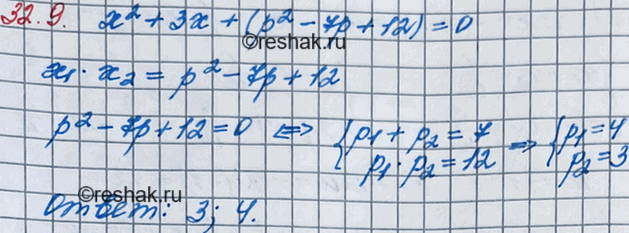 32.9. x² + 3x + (p² - 7p + 12) = 0
©reshak.ru
x₁ · x₂ = p² - 7p + 12
p² - 7p + 12 = 0 ⟺ { p₁ + p₂ = 7 ⇒ { p₁ = 4
p₁ · p₂ = 12 p₂ = 3
©reshak.ru
©reshak.ru
Ответ: 3; 4.